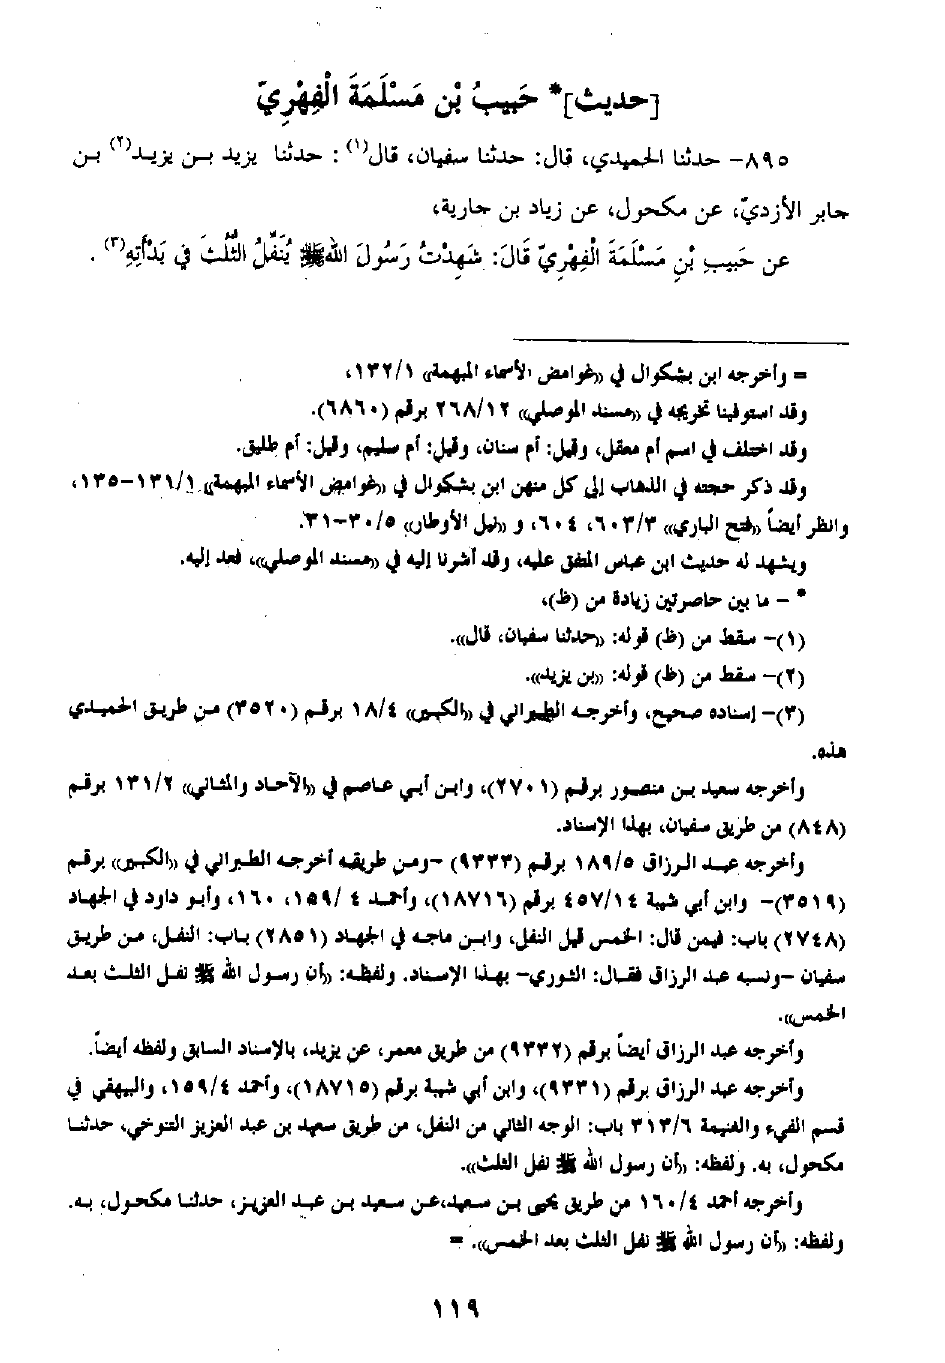 [حديث]* حَبِيبُ بْن مَسْلَمَةَ الْفِهْرِيّ
٨٩٥- حدثنا الحميدي، قال: حدثنا سفيان، قال(١): حدثنا يزيد بن يزيد(٢) بن
جابر الأزديّ، عن مكحول، عن زياد بن جارية،
عن حَبِيبِ بْنِ مَسْلَمَةَ الْفِهْرِيّ قَالَ: شَهِدْتُ رَسُولَ اللهِ ﷺ يُنَفِّلُ الثُّلُثَ فِي بَدْأَتِهِ(٣).
= وأخرجه ابن بشكوال في «غوامض الأسماء المبهمة» ١٣٢/١،
وقد استوفينا تخريجه في «مسند الموصلي» ٢٦٨/١٢ برقم (٦٨٦٠).
وقد اختلف في اسم أم معقل، وقيل: أم سنان، وقيل: أم سليم، وقيل: أم طليق.
وقد ذكر حجته في الذهاب إلى كل منهن ابن بشكوال في «غوامض الأسماء المبهمة» ١٣١/١-١٣٥،
وانظر أيضاً «فتح الباري» ٦٠٣/٣، ٦٠٤، و «نيل الأوطار» ٣٠/٥-٣١.
ويشهد له حديث ابن عباس المتفق عليه، وقد أشرنا إليه في «مسند الموصلي»، فعد إليه.
* - ما بين حاصرتين زيادة من (ظ)،
(١)- سقط من (ظ) قوله: «حدثنا سفيان، قال».
(٢)- سقط من (ظ) قوله: «بن يزيد».
(٣)- إسناده صحيح، وأخرجه الطبراني في «الكبير» ١٨/٤ برقم (٣٥٢٠) من طريق الحميدي
هذه.
وأخرجه سعيد بن منصور برقم (٢٧٠١)، وابن أبي عاصم في «الآحاد والمثاني» ١٣١/٢ برقم
(٨٤٨) من طريق سفيان، بهذا الإسناد.
وأخرجه عبد الرزاق ١٨٩/٥ برقم (٩٣٣٣) -ومن طريقه أخرجه الطبراني في «الكبير» برقم
(٣٥١٩)- وابن أبي شيبة ٤٥٧/١٤ برقم (١٨٧١٦)، وأحمد ٤ /١٥٩، ١٦٠، وأبو داود في الجهاد
(٢٧٤٨) باب: فيمن قال: الخمس قبل النفل، وابن ماجه في الجهاد (٢٨٥١) باب: النفل، من طريق
سفيان -ونسبه عبد الرزاق فقال: الثوري- بهذا الإسناد. ولفظه: «أن رسول الله ﷺ نفل الثلث بعد
الخمس».
وأخرجه عبد الرزاق أيضاً برقم (٩٣٣٢) من طريق معمر، عن يزيد، بالإسناد السابق ولفظه أيضاً.
وأخرجه عبد الرزاق برقم (٩٣٣١)، وابن أبي شيبة برقم (١٨٧١٥)، وأحمد ١٥٩/٤، والبيهقي في
قسم الفيء والغنيمة ٣١٣/٦ باب: الوجه الثاني من النفل، من طريق سعيد بن عبد العزيز التنوخي، حدثنا
مكحول، به. ولفظه: «أن رسول الله ﷺ نفل الثلث».
وأخرجه أحمد ١٦٠/٤ من طريق يحيى بن سعيد، عن سعيد بن عبد العزيز، حدثنا مكحول، به.
ولفظه: «أن رسول الله ﷺ نفل الثلث بعد الخمس». =
١١٩